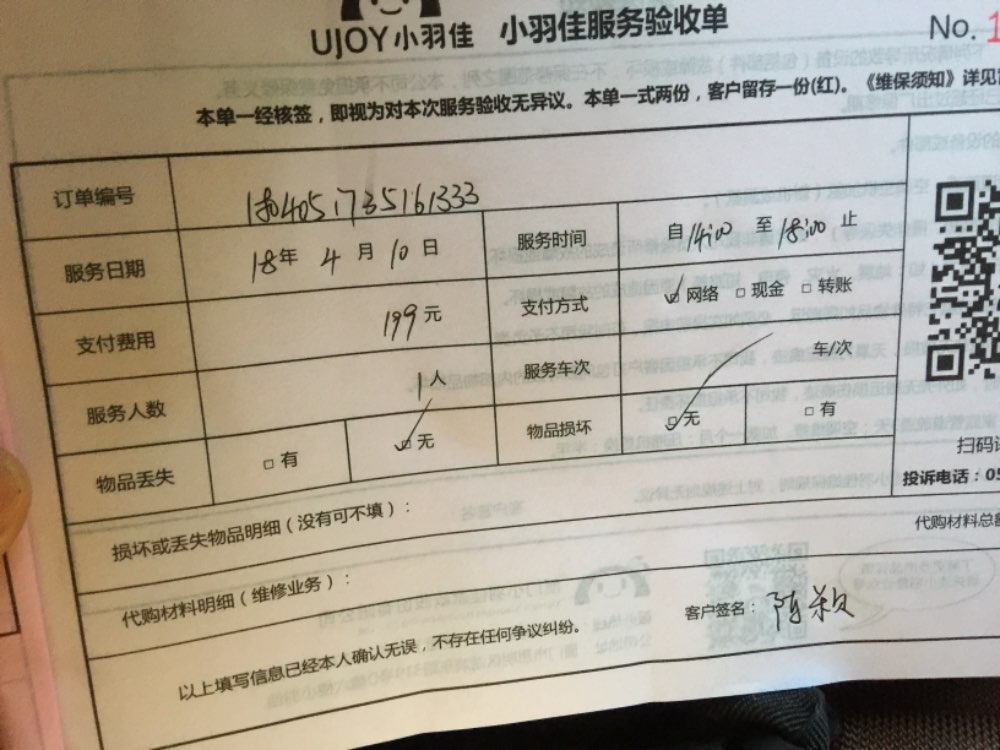 UJOY小羽佳 小羽佳服务验收单
No. 1
本单一经核签，即视为对本次服务验收无异议。本单一式两份，客户留存一份(红)。《维保须知》详见
订单编号
服务日期 18年 4月 10日 服务时间 自14:00 至18:00 止
支付费用 199元 支付方式 ☑网络 □现金 □转账
服务人数 1人 服务车次 车/次
物品丢失 □有 ☑无 物品损坏 ☑无 □有
扫码
投诉电话：05
损坏或丢失物品明细（没有可不填）：
代购材料总
代购材料明细（维修业务）：
以上填写信息已经本人确认无误，不存在任何争议纠纷。 客户签名：陈颖